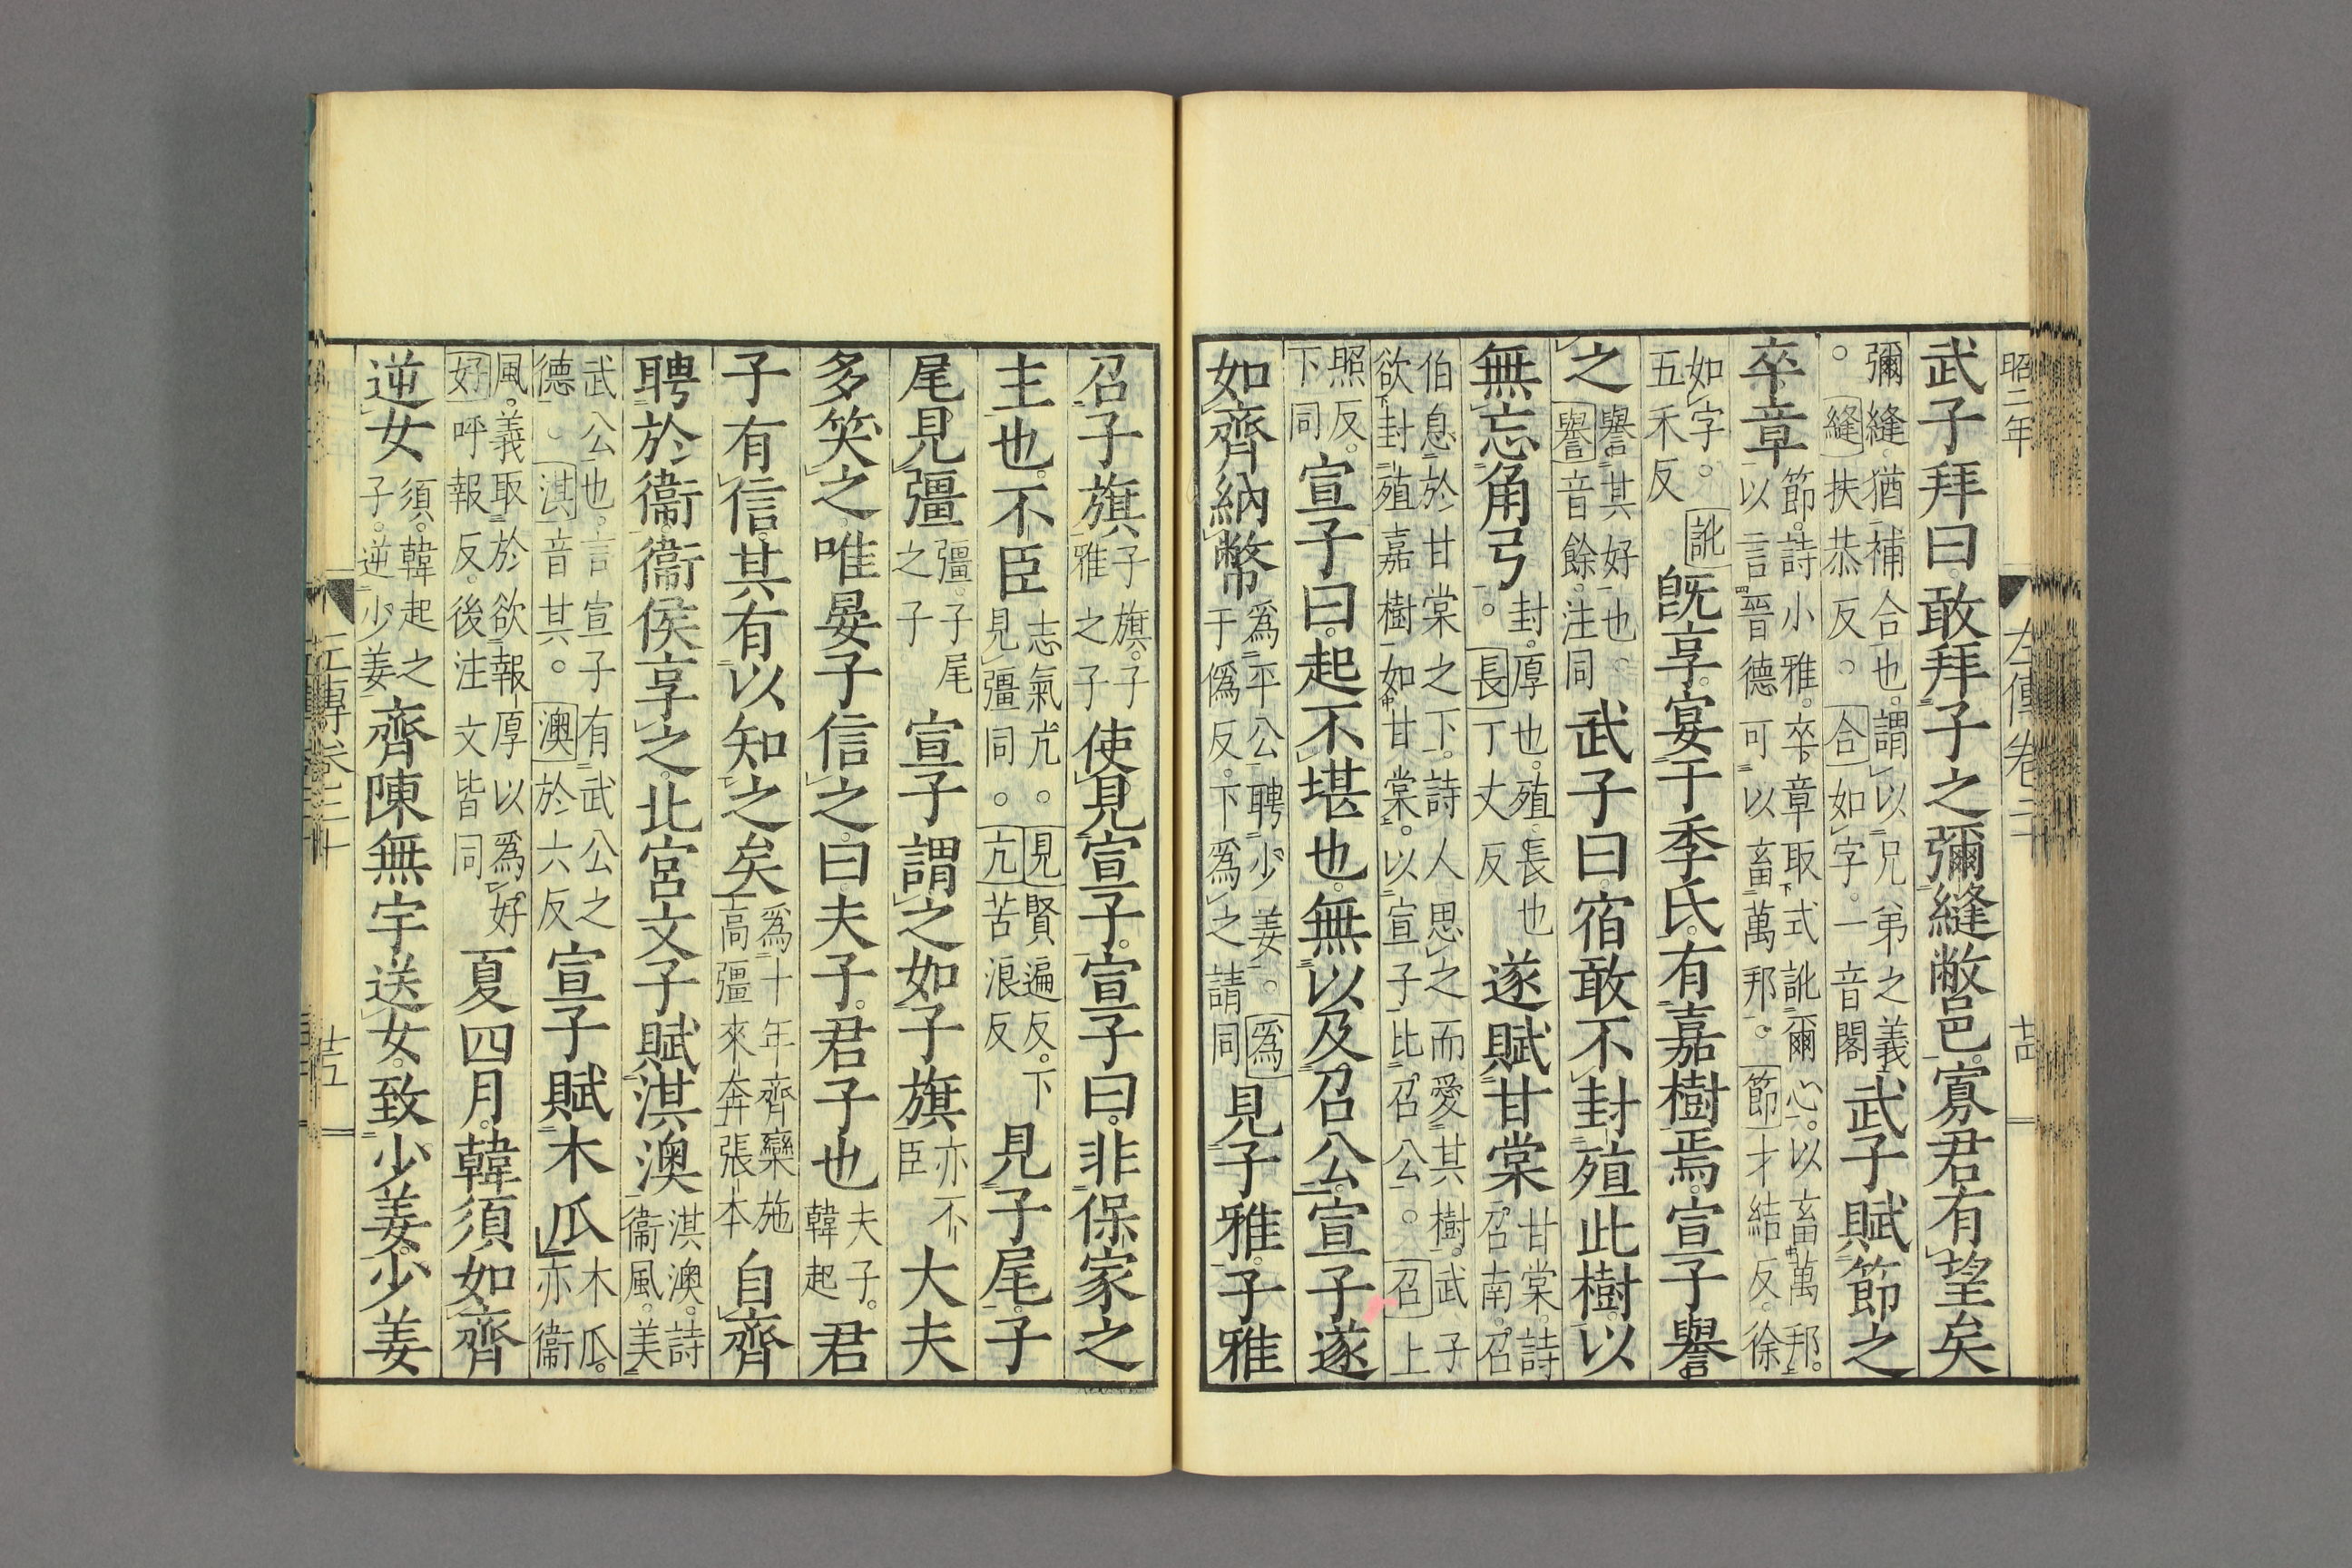 昭二年
左傳卷二十
十四
武子拜曰敢拜子之彌縫敝邑寡君有望矣
彌縫猶補合也謂以兄弟之義。縫扶恭反。合如字一音閤武子賦節之
卒章節詩小雅卒章取式訛爾心以畜萬邦以言晉德可以畜萬邦。節才結反徐
如字。訛五禾反既享宴于季氏有嘉樹焉宣子譽
之譽其好也。譽音餘注同武子曰宿敢不封殖此樹以
無忘角弓封厚也殖長也。長丁丈反遂賦甘棠甘棠詩召南召
伯息於甘棠之下詩人思之而愛其樹武子欲封殖嘉樹如甘棠以宣子比召公。召上
照反下同宣子曰起不堪也無以及召公宣子遂
如齊納幣爲平公聘少姜。爲于僞反下爲之請同見子雅子雅
召子旗子旗子雅之子使見宣子宣子曰非保家之
主也不臣志氣亢。見賢遍反下見彊同。亢苦浪反見子尾子
尾見彊彊子尾之子宣子謂之如子旗亦不臣大夫
多笑之唯晏子信之曰夫子君子也夫子韓起君
子有信其有以知之矣爲十年齊欒施高彊來奔張本自齊
聘於衞衞侯享之北宮文子賦淇澳淇澳詩衞風美
武公也言宣子有武公之德。淇音其。澳於六反宣子賦木瓜木瓜亦衞
風義取於欲報厚以爲好。好呼報反後注文皆同夏四月韓須如齊
逆女須韓起之子逆少姜齊陳無宇送女致少姜少姜
左傳卷二十
十五